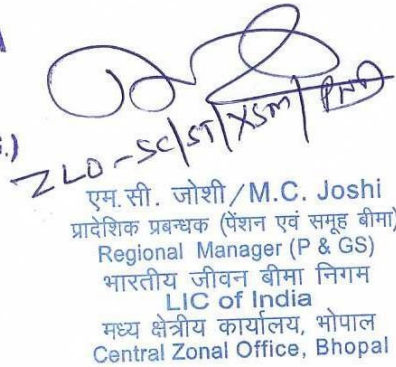 ZLO-SC/ST/XSM/PWD
एम. सी. जोशी/M.C. Joshi
प्रादेशिक प्रबन्धक (पेंशन एवं समूह बीमा)
Regional Manager (P & GS)
भारतीय जीवन बीमा निगम
LIC of India
मध्य क्षेत्रीय कार्यालय, भोपाल
Central Zonal Office, Bhopal